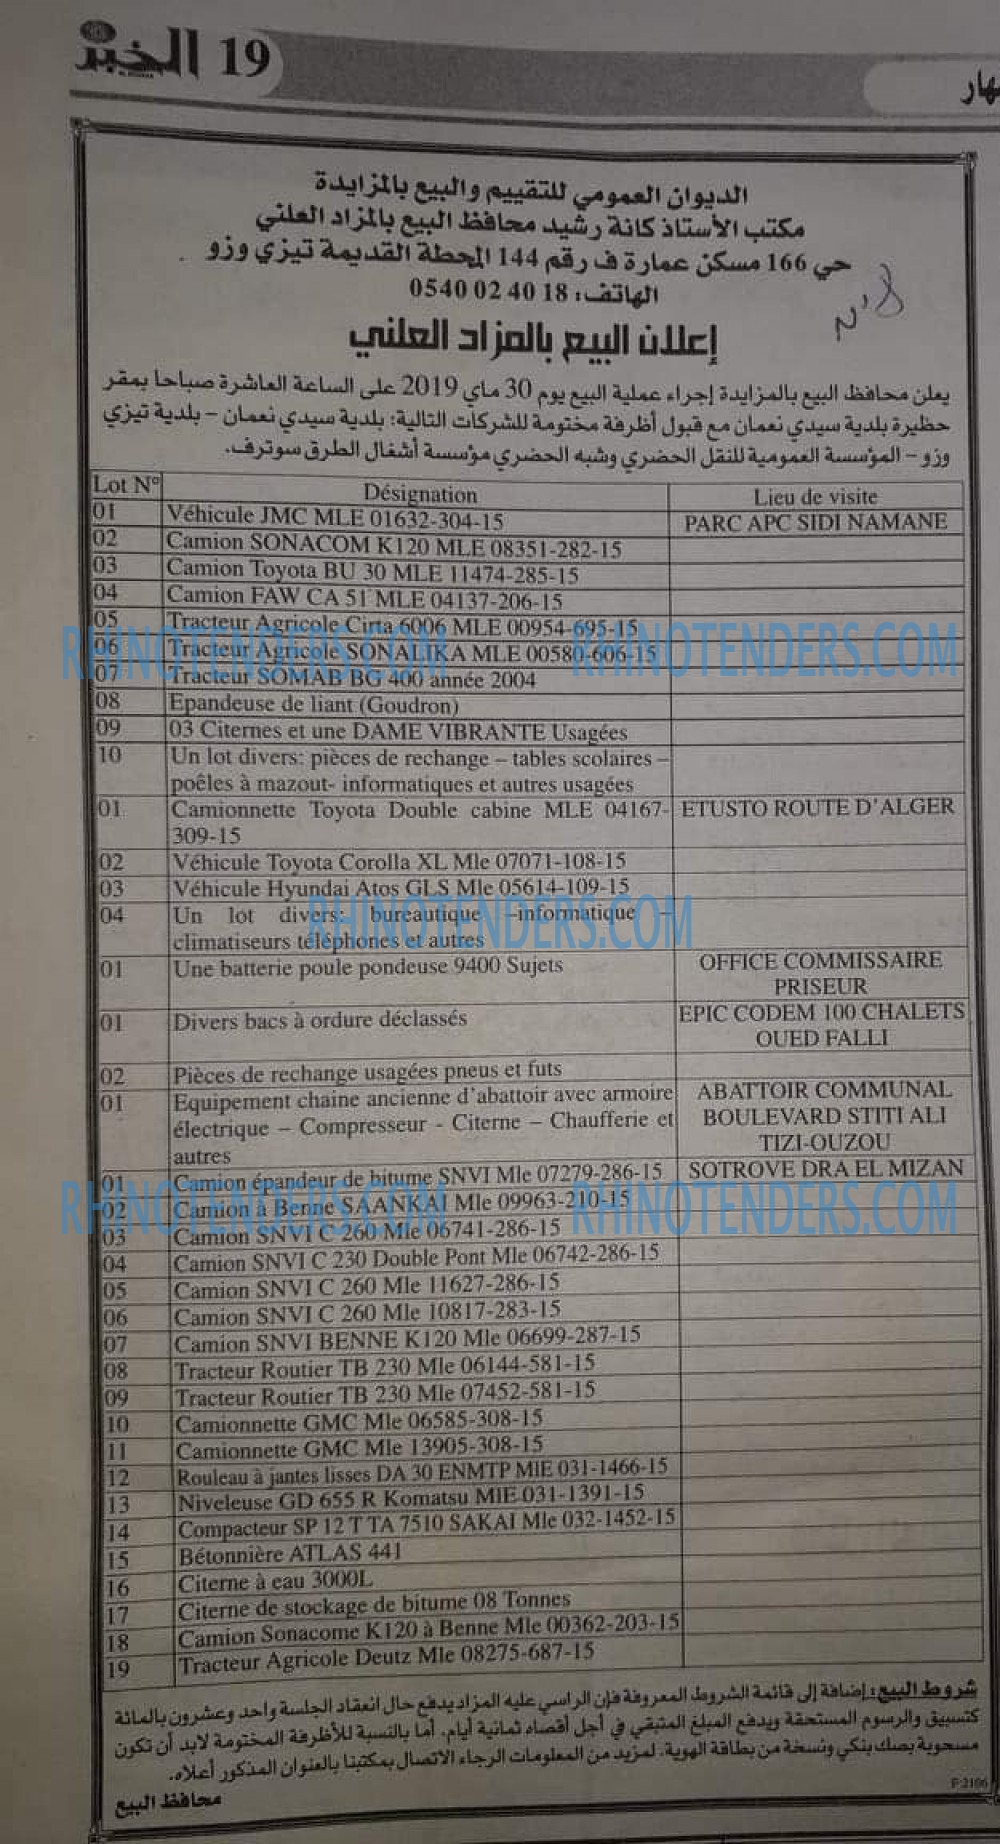 19 الخبر
هار
الديوان العمومي للتقييم والبيع بالمزايدة
مكتب الأستاذ كانة رشيد محافظ البيع بالمزاد العلني
حي 166 مسكن عمارة ف رقم 144 المحطة القديمة تيزي وزو
الهاتف: 0540 02 40 18
إعلان البيع بالمزاد العلني
يعلن محافظ البيع بالمزايدة إجراء عملية البيع يوم 30 ماي 2019 على الساعة العاشرة صباحا بمقر
حظيرة بلدية سيدي نعمان مع قبول أظرفة مختومة للشركات التالية: بلدية سيدي نعمان – بلدية تيزي
وزو – المؤسسة العمومية للنقل الحضري وشبه الحضري مؤسسة أشغال الطرق سوترف.
Lot N° Désignation Lieu de visite
01 Véhicule JMC MLE 01632-304-15 PARC APC SIDI NAMANE
02 Camion SONACOM K120 MLE 08351-282-15
03 Camion Toyota BU 30 MLE 11474-285-15
04 Camion FAW CA 51 MLE 04137-206-15
05 Tracteur Agricole Cirta 6006 MLE 00954-695-15
06 Tracteur Agricole SONALIKA MLE 00580-606-15
RHINOTENDERS.COM RHINOTENDERS.COM
07 Tracteur SOMAB BG 400 année 2004
08 Epandeuse de liant (Goudron)
09 03 Citernes et une DAME VIBRANTE Usagées
10 Un lot divers: pièces de rechange – tables scolaires –
poêles à mazout- informatiques et autres usagées
01 Camionnette Toyota Double cabine MLE 04167- ETUSTO ROUTE D'ALGER
309-15
02 Véhicule Toyota Corolla XL Mle 07071-108-15
03 Véhicule Hyundai Atos GLS Mle 05614-109-15
04 Un lot divers: bureautique –informatique –
RHINOTENDERS.COM
climatiseurs téléphones et autres
01 Une batterie poule pondeuse 9400 Sujets OFFICE COMMISSAIRE
PRISEUR
01 Divers bacs à ordure déclassés EPIC CODEM 100 CHALETS
OUED FALLI
02 Pièces de rechange usagées pneus et futs
01 Equipement chaine ancienne d'abattoir avec armoire ABATTOIR COMMUNAL
électrique – Compresseur - Citerne – Chaufferie et BOULEVARD STITI ALI
autres TIZI-OUZOU
01 Camion épandeur de bitume SNVI Mle 07279-286-15 SOTROVE DRA EL MIZAN
02 Camion à Benne SAANKAI Mle 09963-210-15
RHINOTENDERS.COM RHINOTENDERS.COM
03 Camion SNVI C 260 Mle 06741-286-15
04 Camion SNVI C 230 Double Pont Mle 06742-286-15
05 Camion SNVI C 260 Mle 11627-286-15
06 Camion SNVI C 260 Mle 10817-283-15
07 Camion SNVI BENNE K120 Mle 06699-287-15
08 Tracteur Routier TB 230 Mle 06144-581-15
09 Tracteur Routier TB 230 Mle 07452-581-15
10 Camionnette GMC Mle 06585-308-15
11 Camionnette GMC Mle 13905-308-15
12 Rouleau à jantes lisses DA 30 ENMTP MIE 031-1466-15
13 Niveleuse GD 655 R Komatsu MIE 031-1391-15
14 Compacteur SP 12 T TA 7510 SAKAI Mle 032-1452-15
15 Bétonnière ATLAS 441
16 Citerne à eau 3000L
17 Citerne de stockage de bitume 08 Tonnes
18 Camion Sonacome K120 à Benne Mle 00362-203-15
19 Tracteur Agricole Deutz Mle 08275-687-15
شروط البيع: إضافة إلى قائمة الشروط المعروفة فإن الراسي عليه المزاد يدفع حال انعقاد الجلسة واحد وعشرون بالمائة
كتسبيق والرسوم المستحقة ويدفع المبلغ المتبقي في أجل أقصاه ثمانية أيام. أما بالنسبة للأظرفة المختومة لابد أن تكون
مسحوبة بصك بنكي ونسخة من بطاقة الهوية. لمزيد من المعلومات الرجاء الاتصال بمكتبنا بالعنوان المذكور أعلاه.
محافظ البيع
F:2106